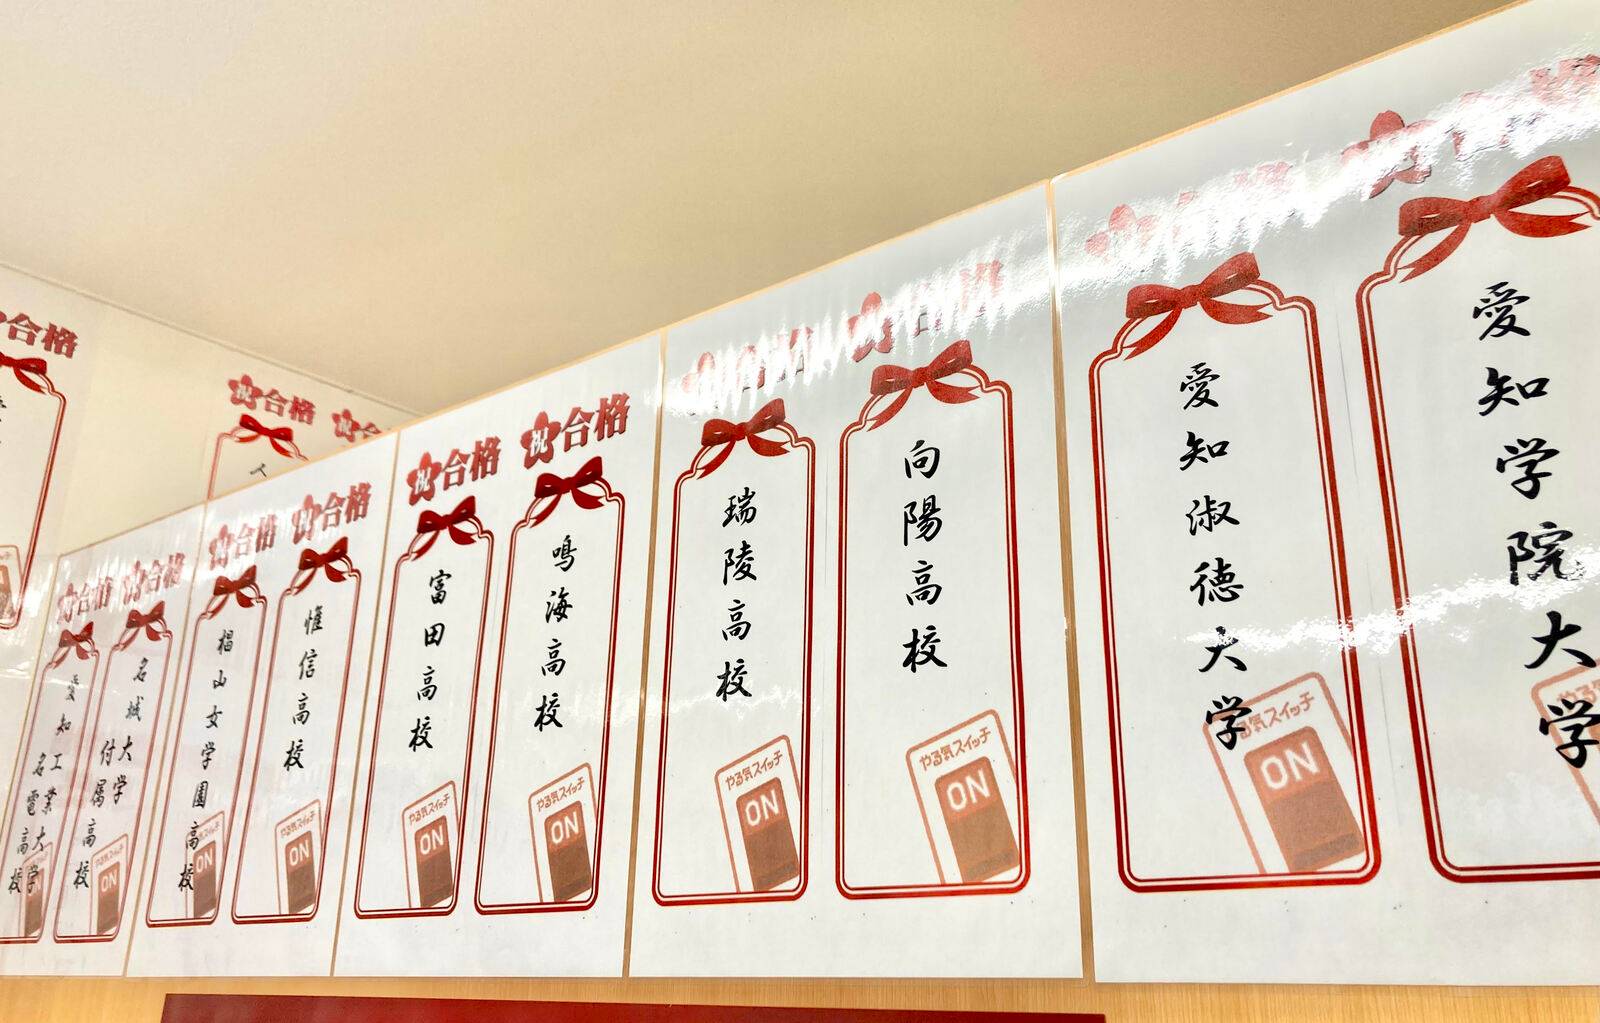 祝合格
愛知学院大学
やる気
愛知淑徳大学
やる気スイッチ
ON
祝合格
向陽高校
やる気スイッチ
ON
祝合格
瑞陵高校
やる気スイッチ
ON
祝合格
鳴海高校
やる気スイッチ
ON
祝合格
富田高校
やる気スイッチ
ON
祝合格
惟信高校
やる気スイッチ
ON
祝合格
椙山女学園高校
ON
祝合格
名城大学
付属高校
ON
祝合格
愛知工業大学
名電高校
祝合格
祝
合格